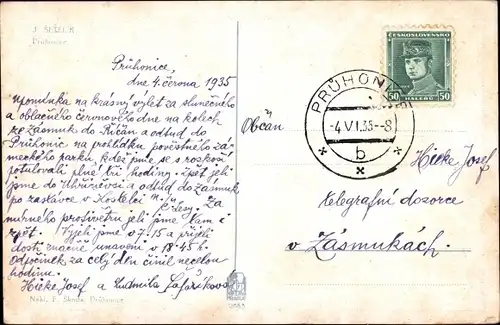 J. 
Průhonice
Průhonice,
dne 4. června 1935
Upomínka na krásný výlet za slunečného
a oblačného červnového dne na kolech
ze Zásmuk do Říčan a odtud do
Průhonic na prohlídku pověstného zá-
meckého parku, kdež jsme se s rozkoší
potulovali plné tři hodiny. Zpět jeli
jsme do Uhříněvsi a odtud do Zásmuk
po zastávce v Kostelci n./Č. lesy. Za
mírného protivětru jeli jsme tam i
zpět. Vyjeli jsme v 7.15 a přijeli
dosti značně unaveni v 18.45 h.
Odpočinek za celý den činil necelou
hodinu.
Hieke Josef a Ludmila Šafaříková
Nákl. F. Skuda, Průhonice
ČESKOSLOVENSKO
50 HALÉŘŮ 50
PRŮHONICE
-4.VI.35-8
b
Občan
Hieke Josef
telegrafní dozorce
v Zásmukách.